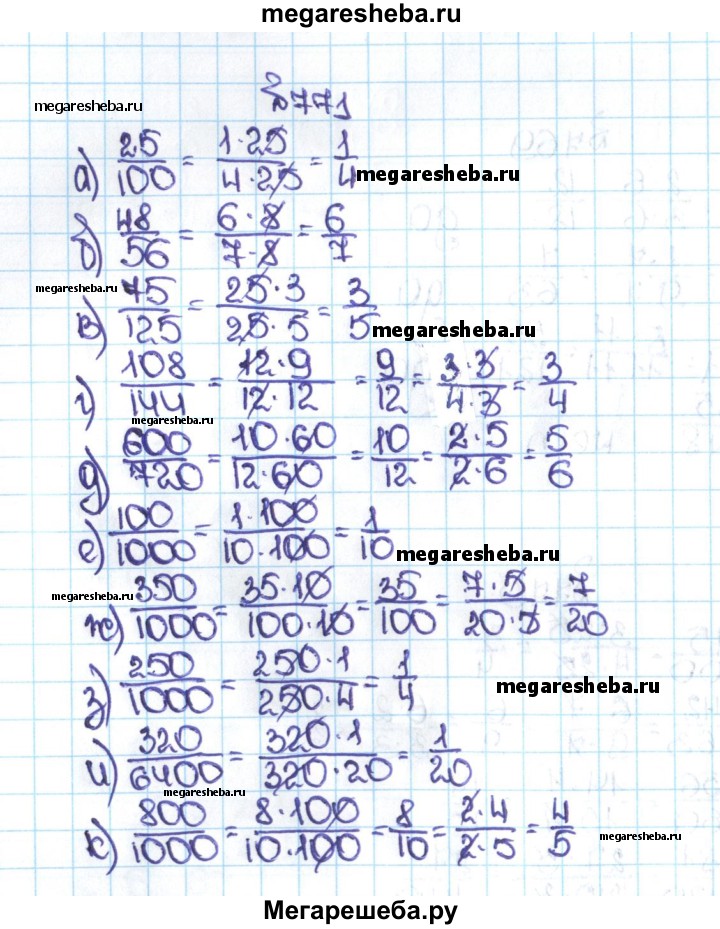 megaresheba.ru
№771
megaresheba.ru
а) 25/100 = 1·25/4·25 = 1/4
megaresheba.ru
б) 48/56 = 6·8/7·8 = 6/7
megaresheba.ru
в) 75/125 = 25·3/25·5 = 3/5
megaresheba.ru
г) 108/144 = 12·9/12·12 = 9/12 = 3·3/4·3 = 3/4
megaresheba.ru
д) 600/720 = 10·60/12·60 = 10/12 = 2·5/2·6 = 5/6
е) 100/1000 = 1·100/10·100 = 1/10
megaresheba.ru
megaresheba.ru
ж) 350/1000 = 35·10/100·10 = 35/100 = 7·5/20·5 = 7/20
з) 250/1000 = 250·1/250·4 = 1/4
megaresheba.ru
и) 320/6400 = 320·1/320·20 = 1/20
megaresheba.ru
к) 800/1000 = 8·100/10·100 = 8/10 = 2·4/2·5 = 4/5
megaresheba.ru
Мегарешеба.ру